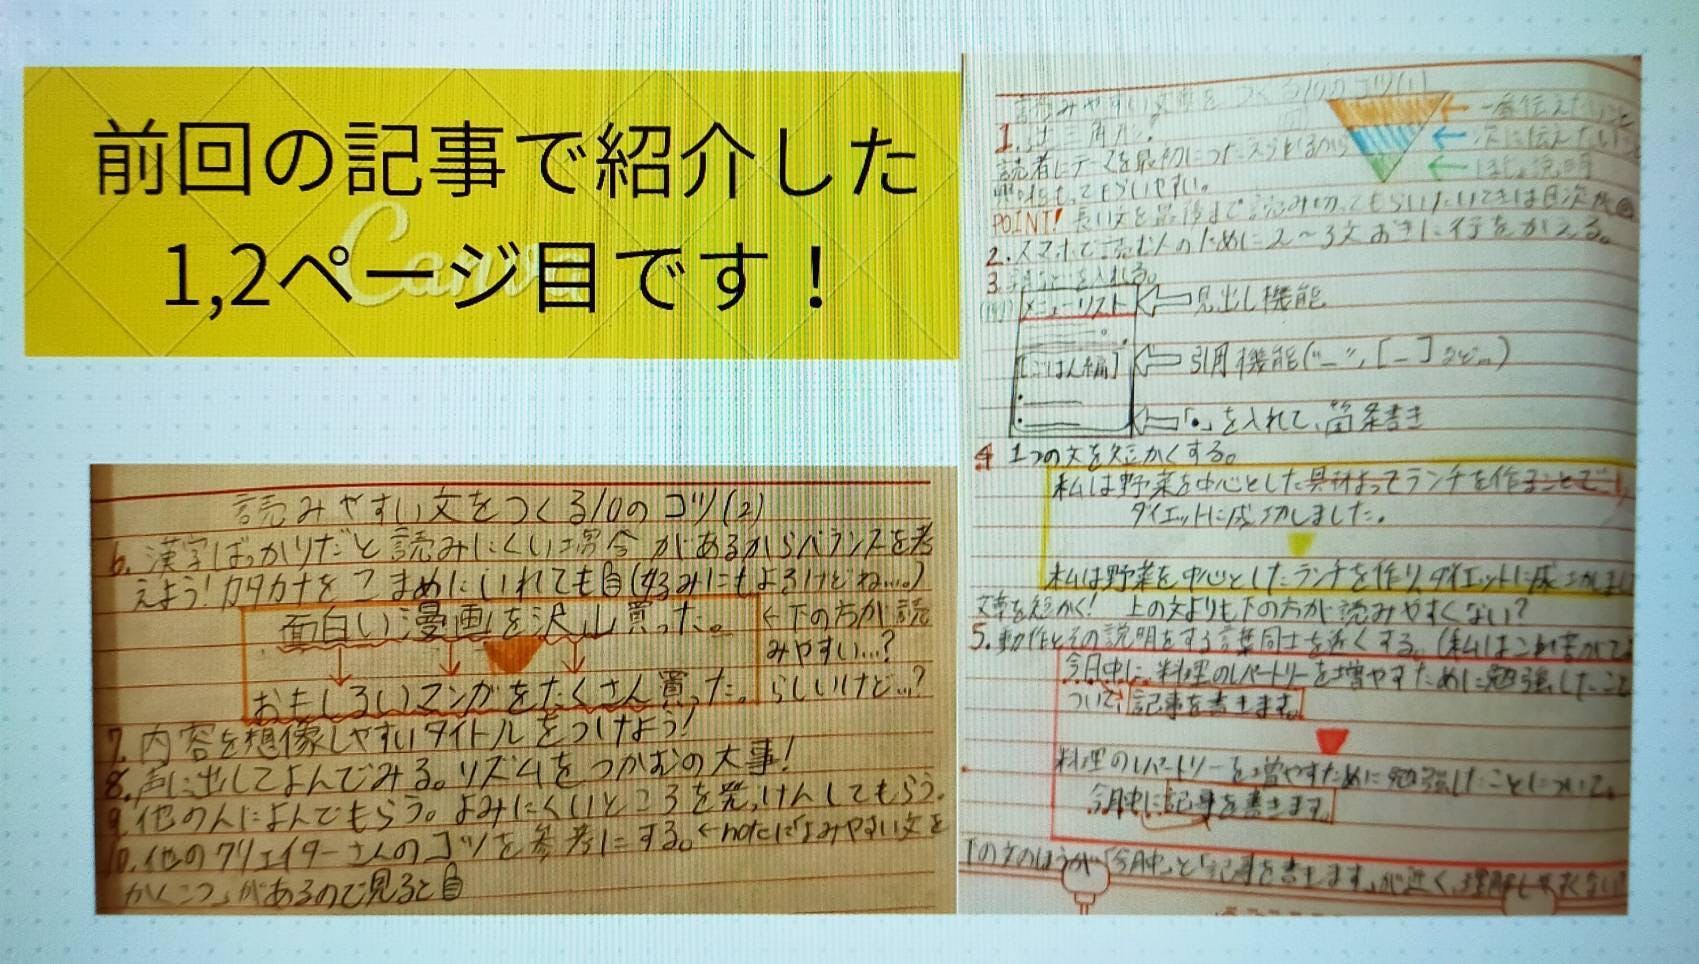 前回の記事で紹介した
1,2ページ目です！
Canva
読みやすい文をつくる10のコツ(1)
1.逆三角形。
一番伝えたいこと
次に伝えたいこと
読者にテーマを最初に
もらいやすい。
POINT! 長い文を最後まで読み切ってもらいたいときは目次が
2.スマホで読む人のために2〜3文おきに行をかえる。
3.を入れる。
メニューリスト
見出し機能
[ごはん編]
引用機能("_",[_]など…)
「•」を入れて、箇条書き
4 1つの文を短かくする。
私は野菜を中心とした具材よってランチを作ることで、
ダイエットに成功しました。
私は野菜を中心としたランチを作り、ダイエットに成功しまし
文章を短かく! 上の文よりも下の方が読みやすくない?
5.動作とその説明をする言葉同士を近くする。(私はこれ書がて
今月中に、料理のレパートリーを増やすために勉強したこと
ついて、記事を書きます。
料理のレパートリーを増やすために勉強したことについて。
今月中に記事を書きます。
下の文のほうが「今月中」と「記事を書きます」が近く、理解しやすくない
読みやすい文をつくる10のコツ(2)
6.漢字ばっかりだと読みにくい場合があるからバランスを考
えよう!カタカナをこまめにいれても自(好みにもよるけどね…。)
面白い漫画を沢山買った。
←下の方が読
みやすい…?
おもしろいマンガをたくさん買った。
らしいけど…?
7.内容を想像しやすいタイトルをつけよう!
8.声に出してよんでみる。リズムをつかむの大事!
9.他の人によんでもらう。よみにくいところを発っけんしてもらう。
10.他のクリエイターさんのコツを参考にする。←noteに「よみやすい文を
かくこつ」があるので見ると自